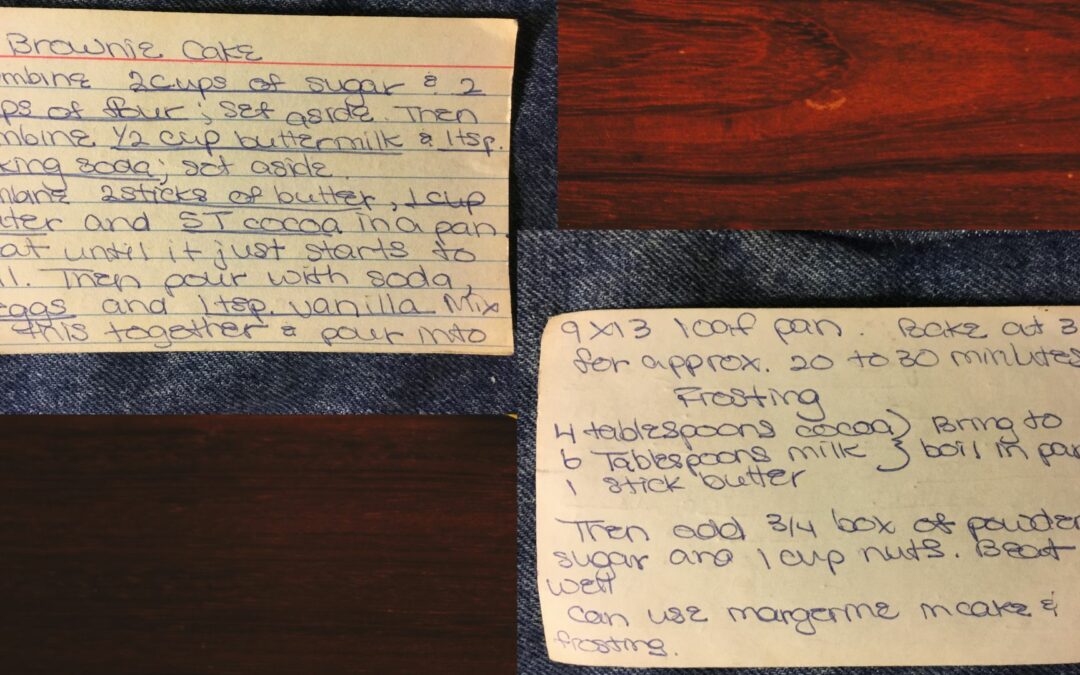 Brownie Cake
mbine 2 cups of sugar & 2
ps of flour; set aside. Then
mbine 1/2 cup buttermilk & 1 tsp.
king soda; set aside.
mbine 2 sticks of butter, 1 cup
ter and 5T cocoa in a pan
at until it just starts to
l. Then pour with soda,
eggs and 1 tsp. vanilla Mix
this together & pour into
9x13 loaf pan. Bake at 3
for approx. 20 to 30 minutes
Frosting
4 tablespoons cocoa } Bring to
6 Tablespoons milk } boil in pan
1 stick butter
Then add 3/4 box of powder
sugar and 1 cup nuts. Beat
well
Can use margerine in cake &
frosting.